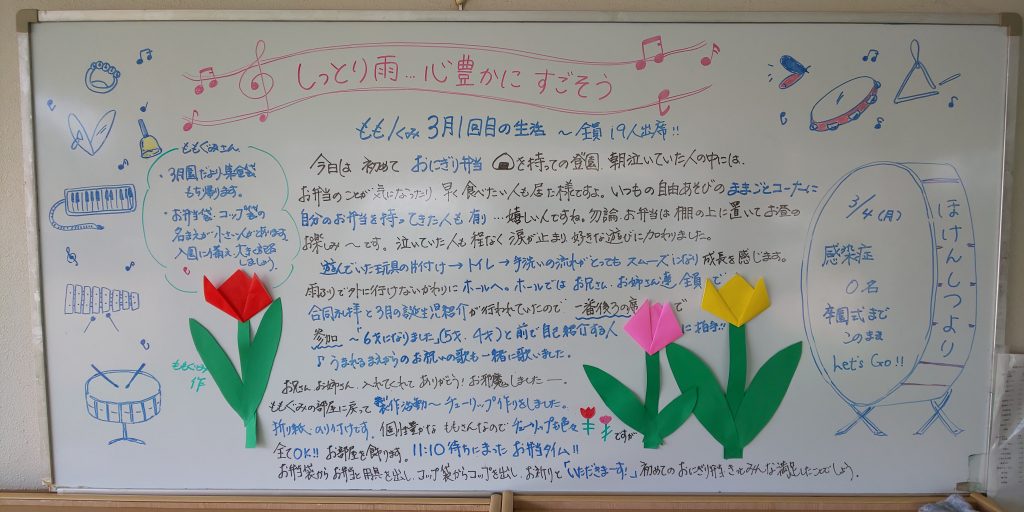 しっとり雨…心豊かに すごそう
ももぐみ 3月1回目の生活 ～ 全員 19人出席!!
今日は 初めて おにぎり弁当 を持っての登園. 朝泣いていた人の中には、
お弁当のことが気になったり、早く食べたい人も居た様ですよ。いつもの自由あそびの ままごとコーナーに
自分のお弁当を持ってきた人も有り…嬉しいんですね。勿論、お弁当は棚の上に置いてお昼の
お楽しみ～です。泣いていた人も程なく涙が止まり 好きな遊びに加わりました。
遊んでいた玩具の片付け→トイレ→手洗いの流れがとってもスムーズになり 成長を感じます。
雨ふりで外に行けないかわりに ホールへ。ホールでは お兄さん・お姉さん達、全員で
合同礼拝と3月の誕生児紹介が行われていたので 一番後ろの席で
参加 ～ 6才になりました(5才. 4才)と前で自己紹介する人に拍手!!
♪うまれるまえからのお祝いの歌も一緒に歌いました。
お兄さん お姉さん、入れてくれて ありがとう! お邪魔しました―。
ももぐみの部屋に戻って 製作活動～チューリップ作りをしました。
折り紙、のり付けです。個性豊かな ももさんなので チューリップも色々ですが
全てOK!! お部屋を飾ります. 11:10 待ちにまった お弁当タイム!!
お弁当袋からお弁当と用具を出し、コップ袋からコップを出し、お祈りと「いただきまーす!」初めてのおにぎり弁当きっとみんな満足したことでしょう。
ももぐみさん
・3月園だより 集金袋
もち帰ります。
・お弁当袋・コップ袋の
名まえが小さい人があります。
しましょう
ももぐみ
作
ほけんしつより
3/4(月)
感染症
0名
卒園式まで
このまま
Let's Go!!